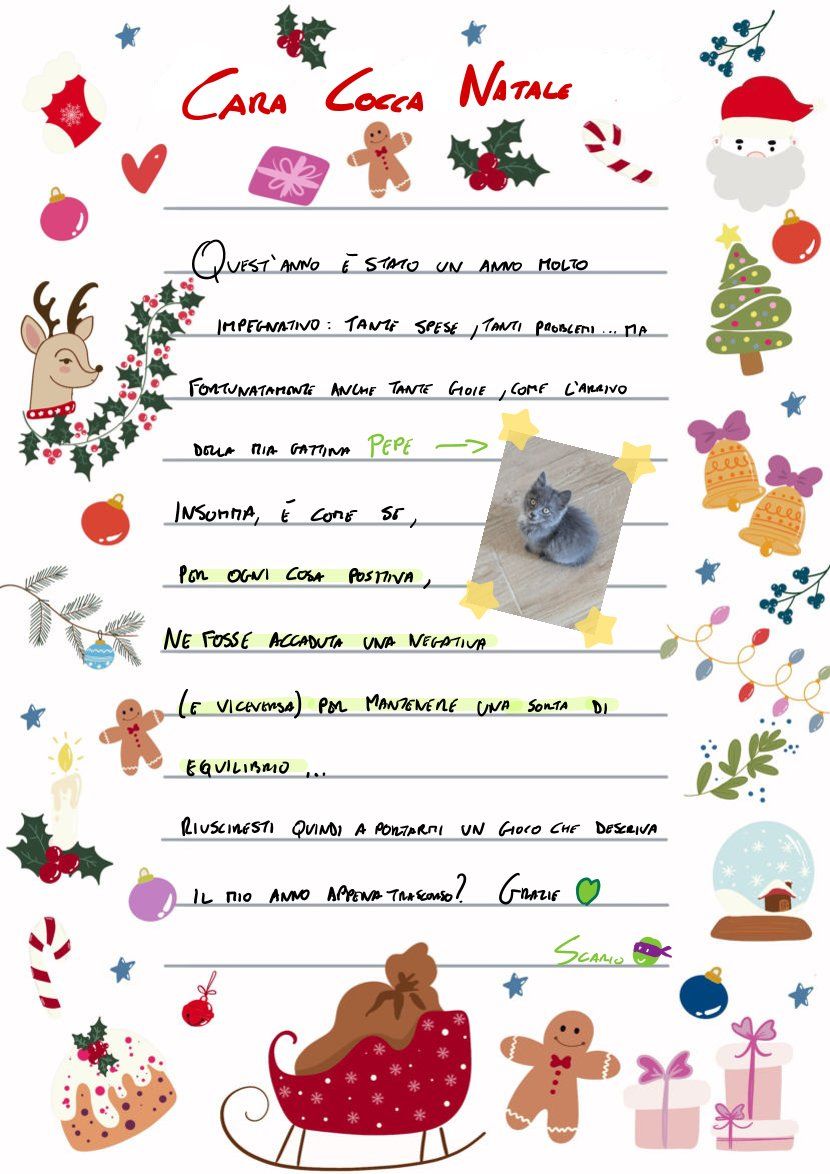 CARA COCCA NATALE
QUEST'ANNO È STATO UN ANNO MOLTO
IMPEGNATIVO: TANTE SPESE, TANTI PROBLEMI... MA
FORTUNATAMENTE ANCHE TANTE GIOIE, COME L'ARRIVO
DELLA MIA GATTINA PEPE →
INSOMMA, È COME SE,
PER OGNI COSA POSITIVA,
NE FOSSE ACCADUTA UNA NEGATIVA
(E VICEVERSA) PER MANTENERE UNA SORTA DI
EQUILIBRIO ...
RIUSCIRESTI QUINDI A PORTARMI UN GIOCO CHE DESCRIVA
IL MIO ANNO APPENA TRASCORSO? GRAZIE 💚
SCARIO